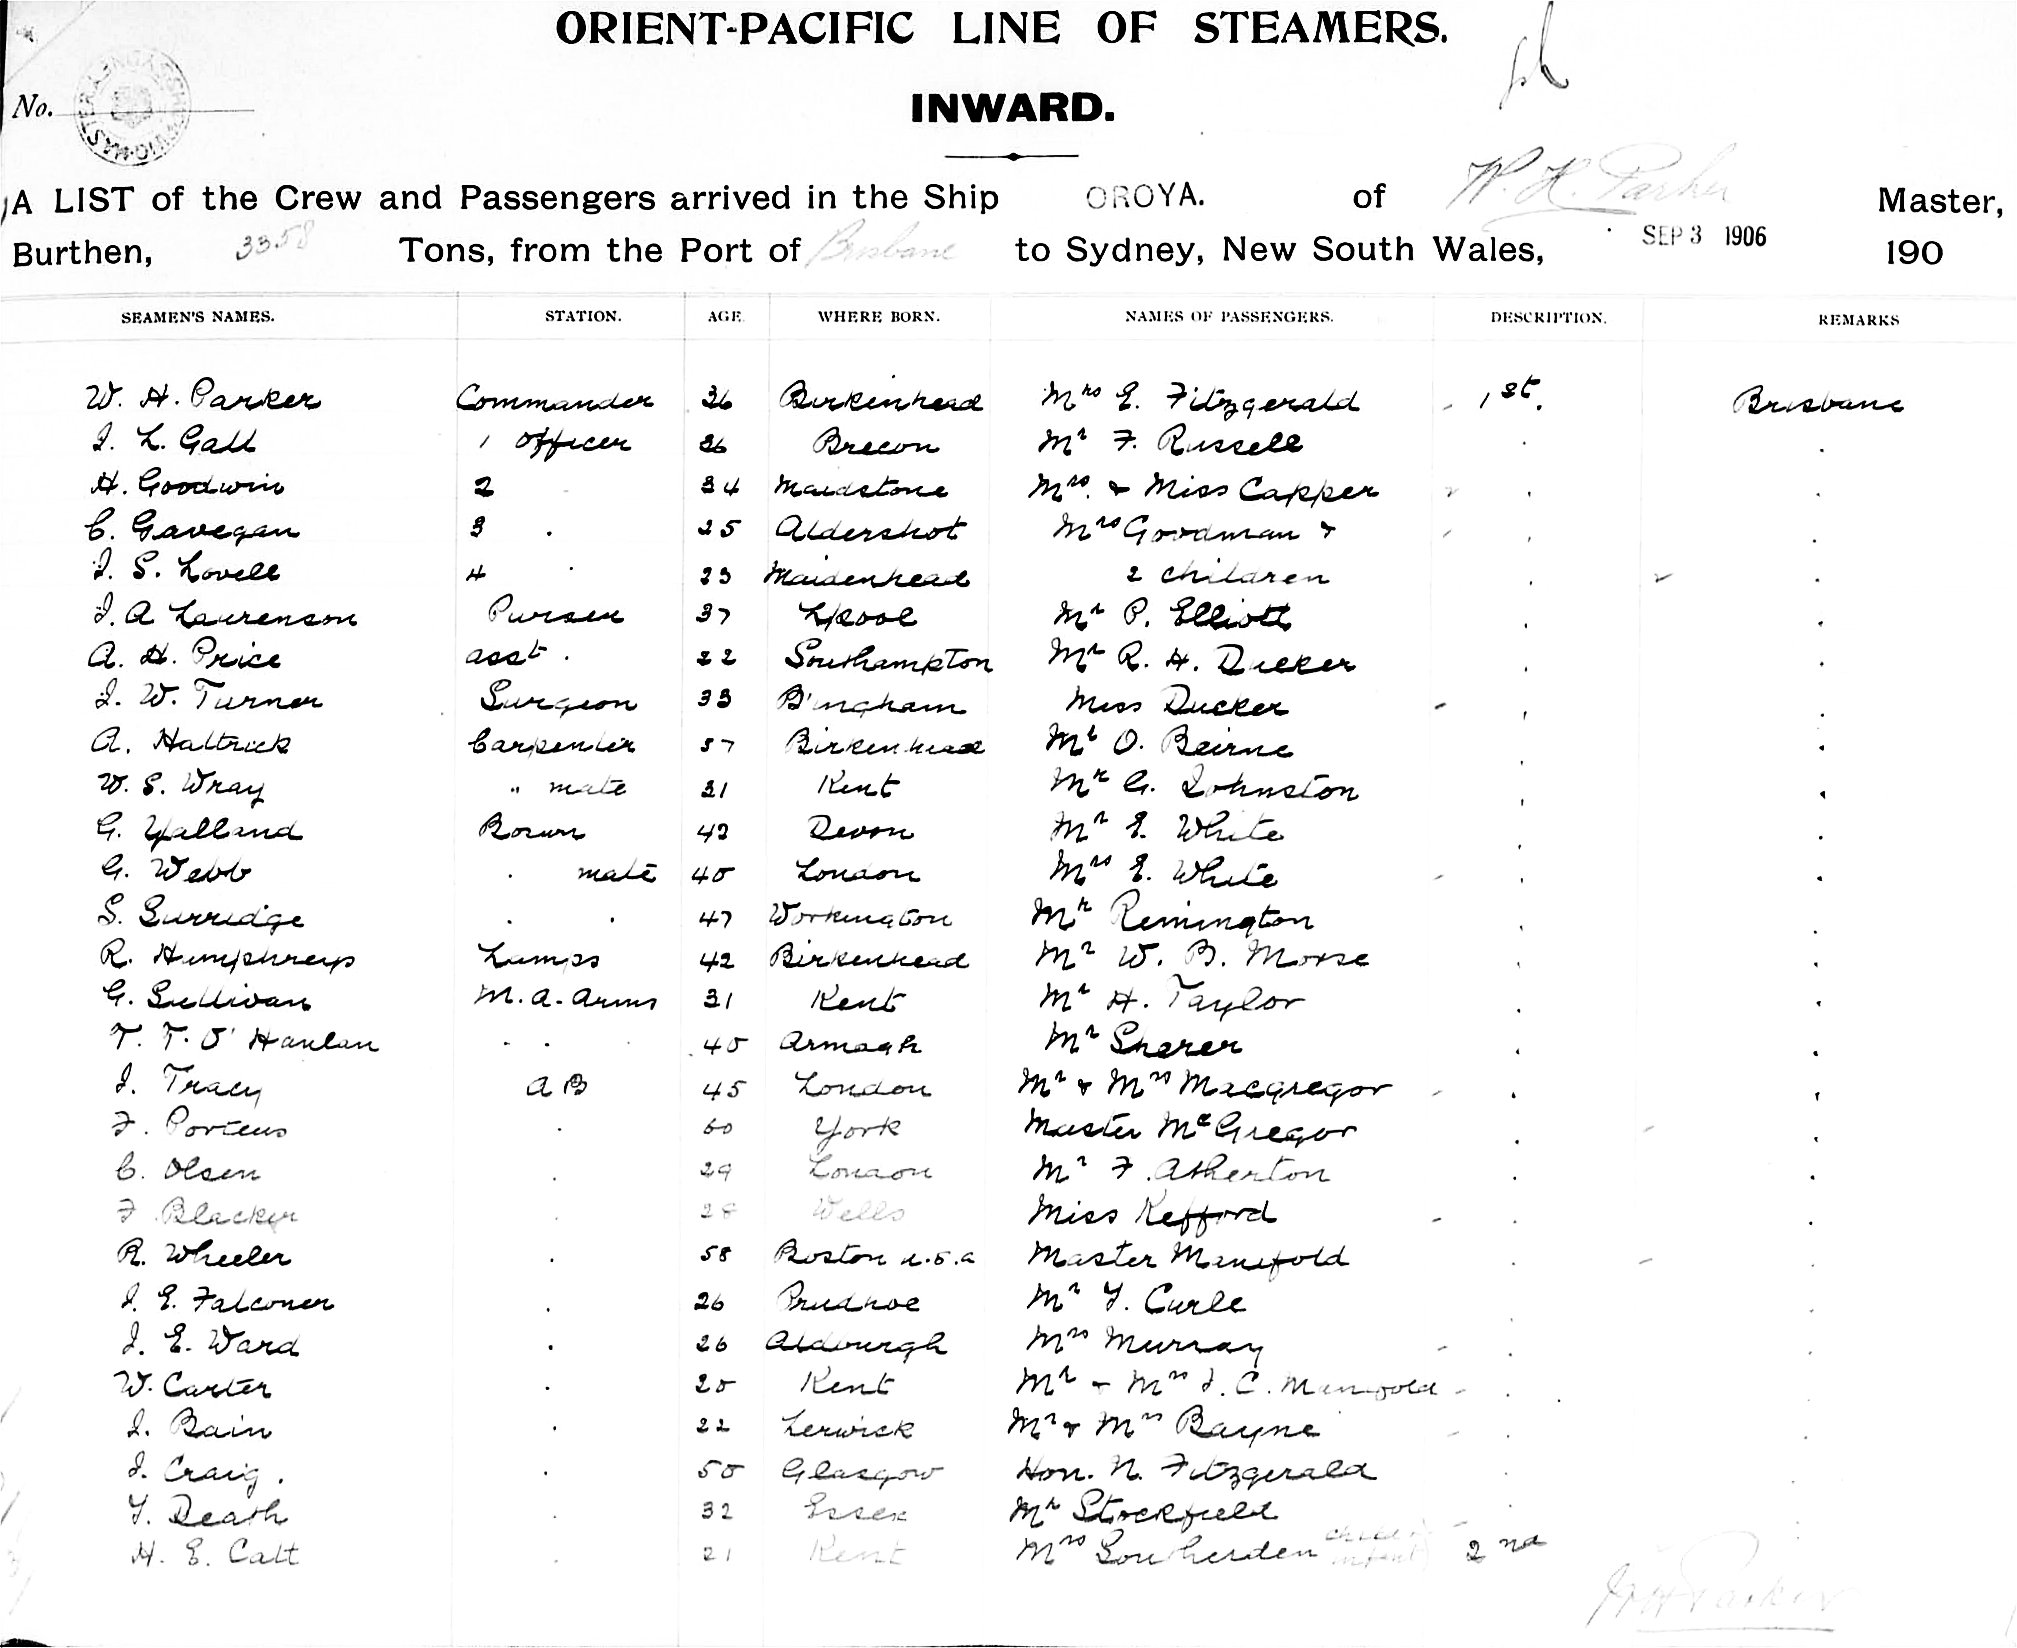 ORIENT-PACIFIC LINE OF STEAMERS.
No.
INWARD.
A LIST of the Crew and Passengers arrived in the Ship OROYA. of W. H. Parker Master,
Burthen, 3358 Tons, from the Port of Brisbane to Sydney, New South Wales, SEP 3 1906 190
SEAMEN'S NAMES. STATION. AGE. WHERE BORN. NAMES OF PASSENGERS. DESCRIPTION. REMARKS
W. H. Parker Commander 36 Birkenhead Mrs E. Fitzgerald 1st. Brisbane
J. L. Gall 1 Officer 36 Brecon Mr F. Russell
H. Goodwin 2 34 Maidstone Mrs. & Miss Capper
C. Gavegan 3 . 25 Aldershot Mrs Goodman &
J. S. Lovell 4 . 23 Maidenhead 2 children
J. A Laurenson Purser 37 L'pool Mr P. Elliott
A. H. Price asst . 22 Southampton Mr R. H. Ducker
J. W. Turner Surgeon 33 B'ingham Miss Ducker
A. Haltrick Carpenter 37 Birkenhead Mr O. Beirne
W. S. Wray " mate 31 Kent Mr G. Johnston
G. Yalland Bosun 42 Devon Mr E. White
G. Webb . mate 40 London Mrs E. White
S. Surridge . . 47 Workington Mr Remington
R. Humphreys Lamps 42 Birkenhead Mr W. B. Morse
G. Sullivan M. a. arms 31 Kent Mr H. Taylor
T. T. O'Hanlan . . 40 Armagh Mr
J. Tracy AB 45 London Mr & Mrs Macgregor
F. Porteus . 60 York Master McGregor
C. Olsen . 29 London Mr F. Atherton
F Blacker . 28 Wells Miss Kefford
R. Wheeler . 58 Boston u.s.a Master Manifold
J. E. Falconer . 26 Prudhoe Mr J. Curle
J. E. Ward . 26 Aldburgh Mrs Murray
W. Carter . 20 Kent Mr & Mrs J. C. Manifold
J. Bain . 22 Lerwick Mr & Mrs Bayne
J. Craig . . 50 Glasgow Hon. N. Fitzgerald
Y. Death . 32 Essex Mr Stockfield
H. E. Catt . 21 Kent Mrs Southerden child infant 2nd
W H Parker